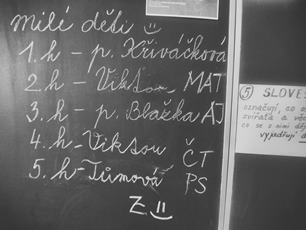 milé děti
1. h - p. Křiváčková
2. h - Viktor MAT
3. h - p. Blažka AJ
4. h - Viktor ČT
5. h - Tůmová PS
Z
5 SLOVES
označují, co
zvířata a
co se s nimi
vyjadřují